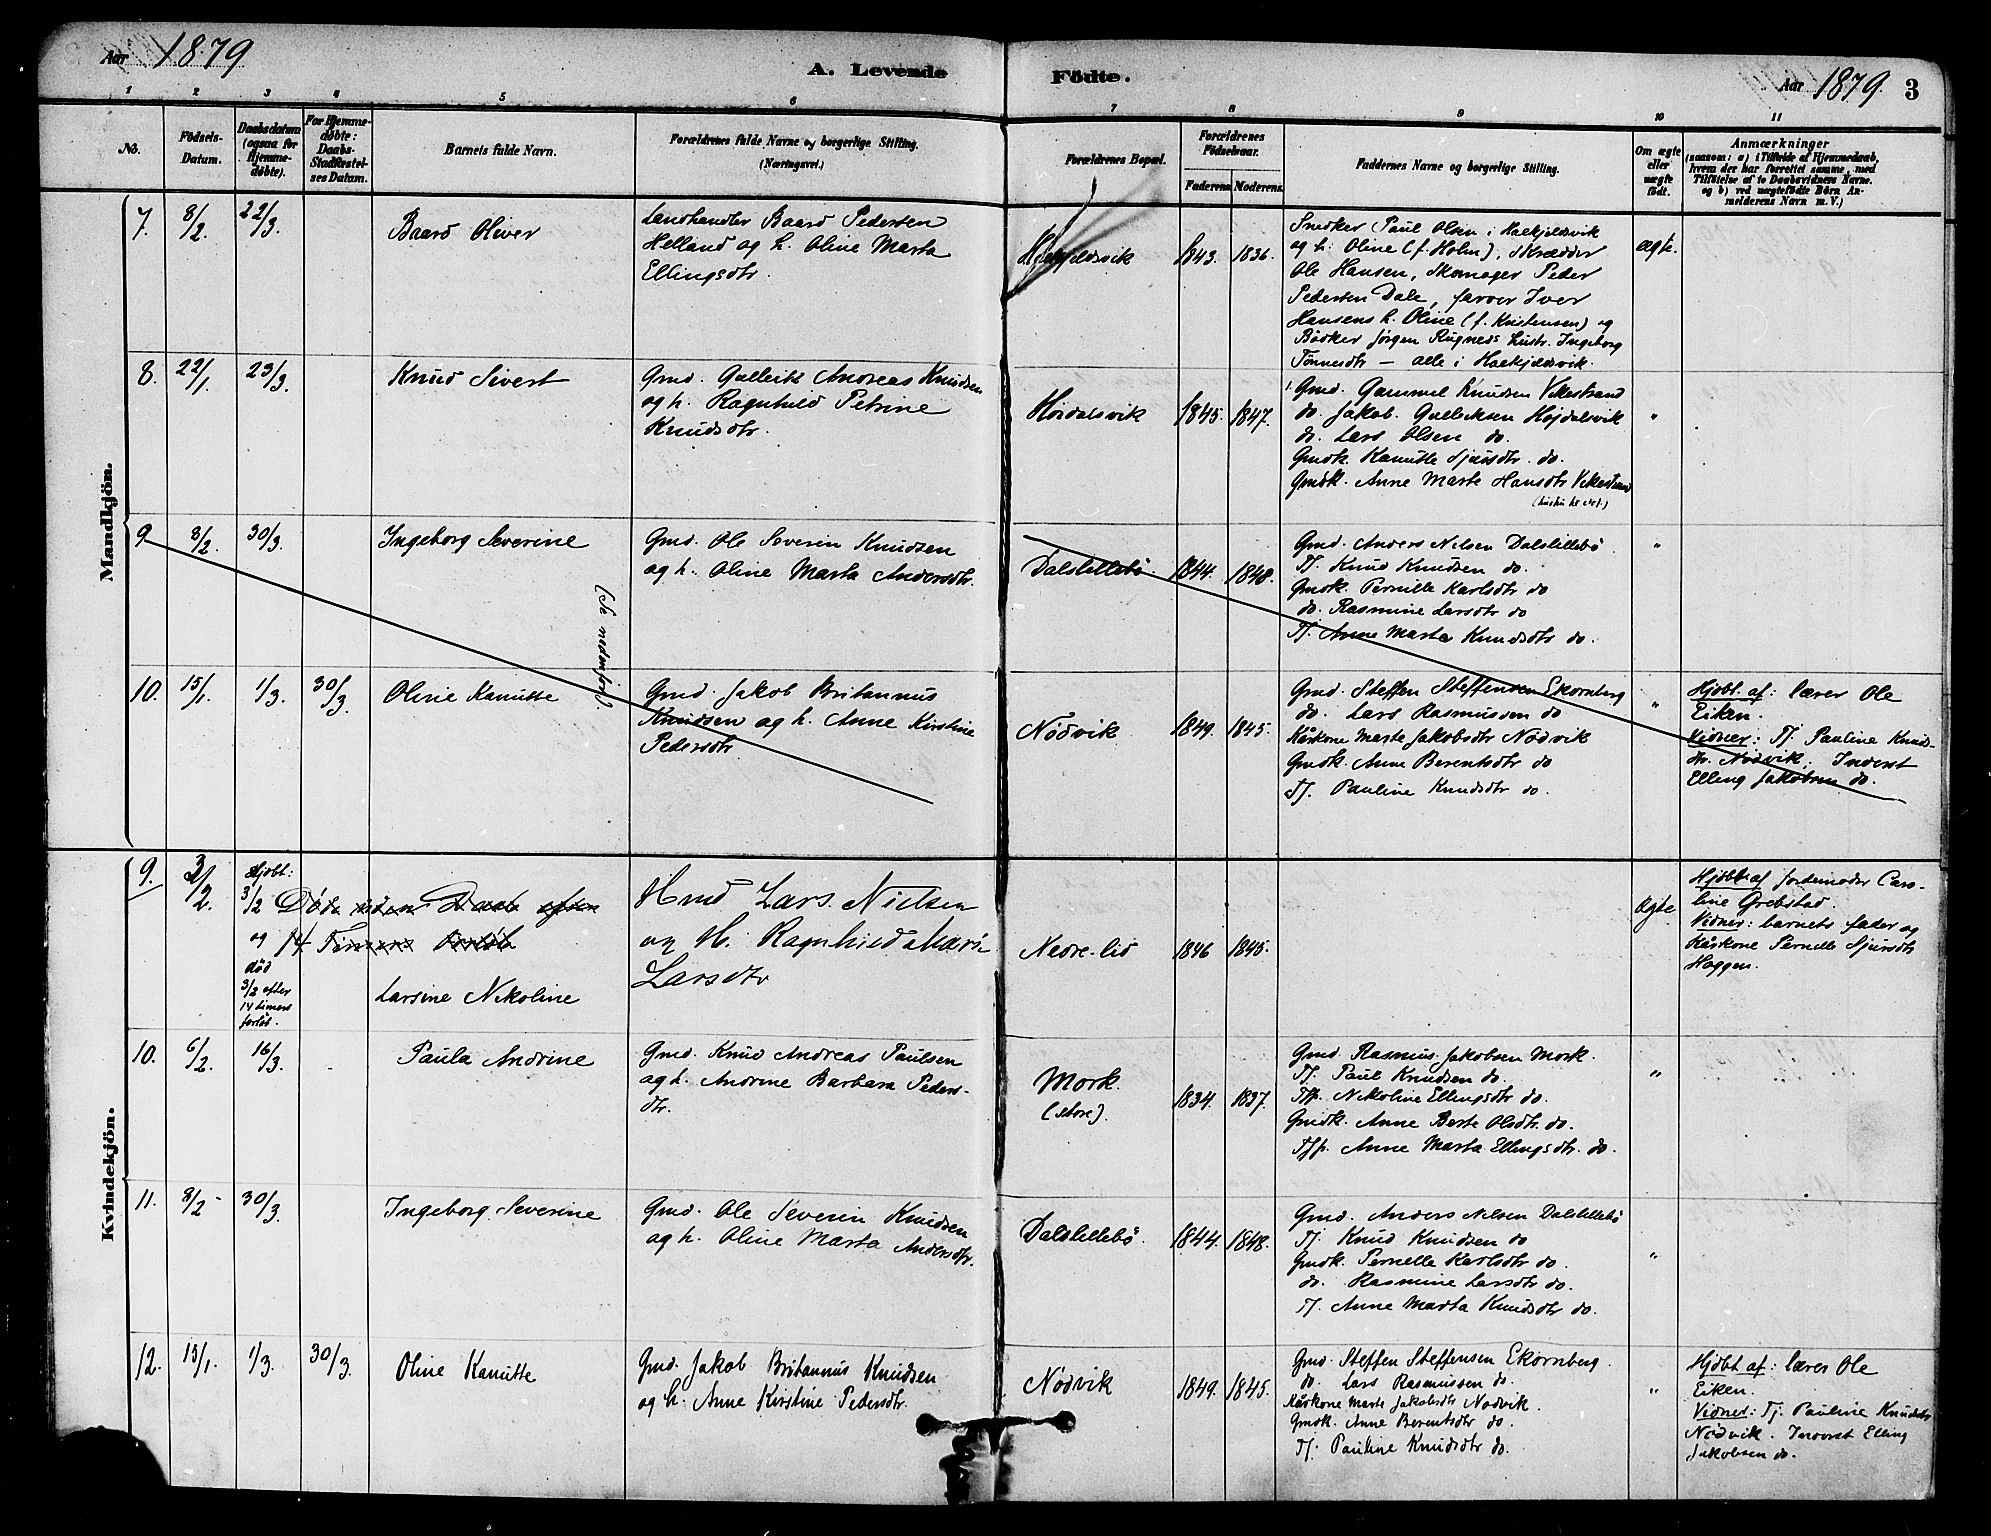 Aar 1879
A. Levende Födte.
Aar 1879. 3
1 2 3 4 5 6 7 8 9 10 11
No.
Födsels-
Datum.
Daabsdatum
(ogsaa for
Hjemme-
døbte).
For Hjemme-
døbte:
Daabs-
Stadfæstel-
ses Datum.
Barnets fulde Navn.
Forældrenes fulde Navne og borgerlige Stilling.
(Næringsvei.)
Forældrenes Bopæl.
Forældrenes
Födselsaar.
Faderens. Moderens.
Faddernes Navne og borgerlige Stilling.
Om ægte
eller
uægte
født.
Anmærkninger
(saasom: a) i Tilfælde af Hjemmedaab,
hvem der har forrettet samme, med
Tilføielse af to Daabsvidners Navne,
og b) ved uægtefødte Børn An-
melderens Navn m. V.)
Mandkjön.
7. 8/2. 22/3.
Baard Oliver
Landhandler Baard Pedersen
Helland og h. Oline Marta
Ellingsdtr.
1843. 1836.
Snedker Paul Olsen i Haekjeldsvik
og h. Oline (f. Holm), Skrædder
Ole Hansen, Skomager Peder
Pedersen Dale, farver Iver
Hansens h. Oline (f. Kristensen) og
Bødker Jørgen Rugneds hustr. Ingeborg
Tønnesdtr — alle i Haekjeldsvik.
ægte.
8. 22/1. 23/3.
Knud Sivert
Gmd. Gullerik Andreas Knudsen
og h. Ragnhild Petrine
Knudsdtr.
Hoidalsvik
1845. 1847.
Gmd. Gammel Knudsen Vikestrand
do. Jakob Gulleksen Højdalsvik
do. Lars Olsen do.
Gmdk. Kanutte Sjursdtr. do.
Gmdk. Anne Marte Hansdtr Vikestrand
"
9 8/2. 30/3.
Ingeborg Severine
(Se nedenfor).
Gmd. Ole Severin Knudsen
og h. Oline Marta Andersdtr.
Dalslillebö.
1844. 1848.
Gmd. Anders Nilsen Dalslillebö.
Tj. Knud Knudsen do.
Gmdk. Pernille Karlsdtr do
do. Rasmine Larsdtr do
Tj. Anne Marta Knudsdtr do.
"
10. 15/1. 1/3. 30/3.
Oline Kanutte
Gmd. Jakob Britannus
Knudsen og h. Anne Kirstine
Pedersdtr
Nödvik
1849. 1845.
Gmd. Steffen Steffensen Ekornberg
do. Lars Rasmussen do
Kårkone Marte Jakobsdtr Nödvik
Gmdk. Anne Berentsdtr do
Tj. Pauline Knudsdtr do.
"
Hjöbt. af: lærer Ole
Eiken.
Vidner: Tj. Pauline Knuds-
dtr. Nödvik, Inderst
Elling Jakobsen do.
Kvindekjön.
9. 3/2.
Hjöbt:
3/2
og
død
3/2 efter
14 timers
forløb.
Döde uden Daab efter
14 Timers Forløb
Larsine Nikoline
Gmd Lars Nielsen
og H. Ragnhild Marie
Larsdtr
Nedre-Lid
1846 1845.
ægte.
Hjöbt af jordemoder Caro-
line Grebstad.
Vidner: barnets fader og
Kårkone Pernelle Sjursdtr
Haggen.
10. 6/2. 16/3.
Paula Andrine
Gmd. Knud Andreas Paulsen
og h. Andrine Barbara Peders-
dtr.
Mork.
(store).
1834. 1837.
Gmd. Rasmus Jakobsen Mork.
Tj. Paul Knudsen do.
Tjp. Nikoline Ellingsdtr do.
Gmdk. Anne Berte Olsdtr. do.
Tjp. Anne Marta Ellingsdtr. do.
"
11. 8/2 30/3.
Ingeborg Severine
Gmd. Ole Severin Knudsen
og h. Oline Marta Andersdtr.
Dalslillebö.
1844. 1848.
Gmd. Anders Nilsen Dalslillebö
Tj. Knud Knudsen do
Gmdk. Pernelle Karlsdtr do.
do. Rasmine Larsdtr do
Tj. Anne Marta Knudsdtr do.
"
12. 15/1. 1/3. 30/3.
Oline Kanutte
Gmd. Jakob Britannus Knudsen
og h. Anne Kirstine Pedersdtr.
Nödvik
1849. 1845.
Gmd. Steffen Steffensen Ekornberg.
do. Lars Rasmussen do.
Kårkone Marte Jakobsdtr Nödvik.
Gmdk. Anne Berentsdtr do.
Tj. Pauline Knudsdtr do.
"
Hjöbt af: lærer Ole
Eiken.
Vidner: Tj. Pauline Knudsdtr
Nödvik. Inderst Elling
Jakobsen do.